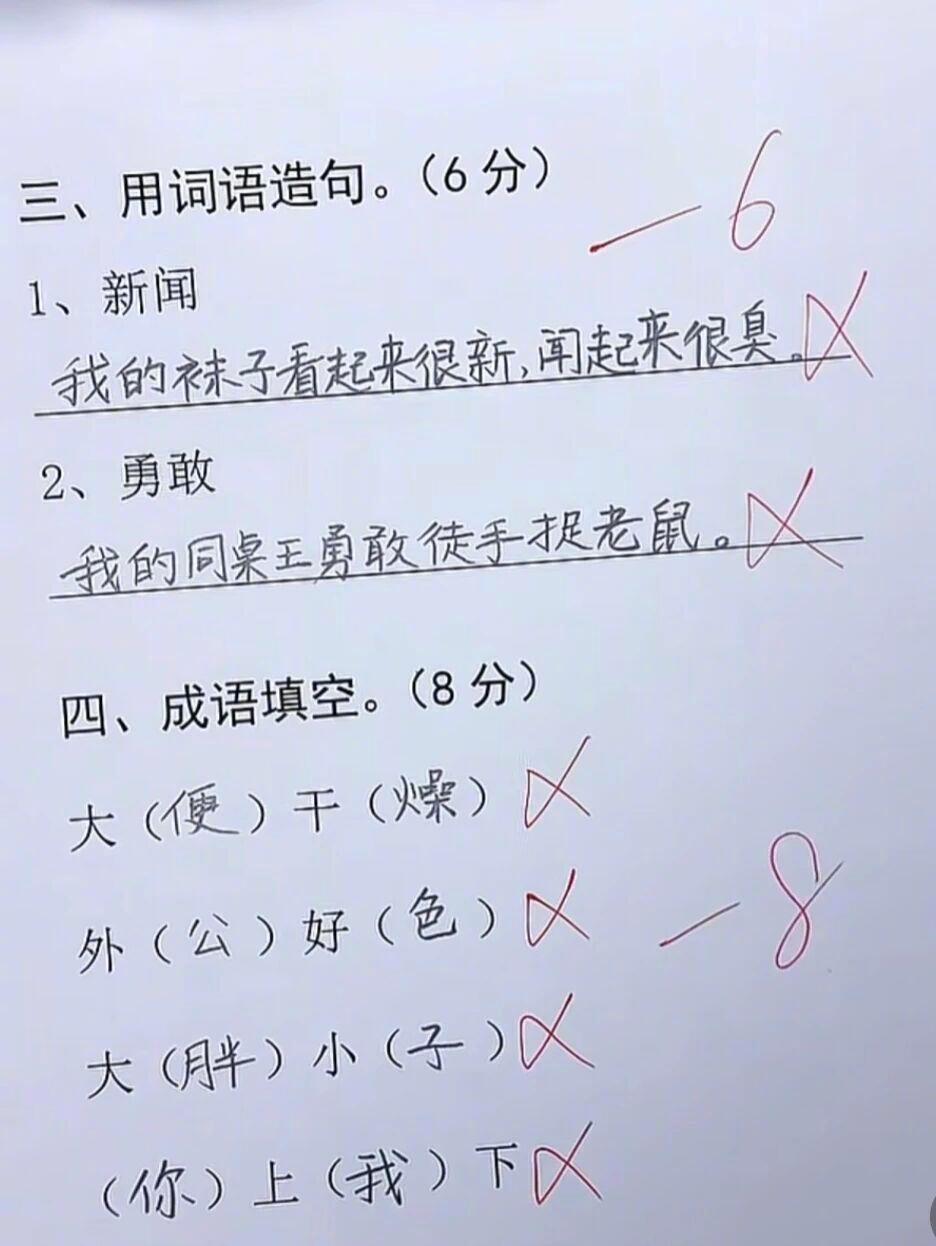 三、用词语造句。(6分)
-6
1、新闻
我的袜子看起来很新,闻起来很臭。
2、勇敢
我的同桌王勇敢徒手捉老鼠。
四、成语填空。(8分)
大(便)干(燥)
外(公)好(色)
-8
大(胖)小(子)
(你)上(我)下